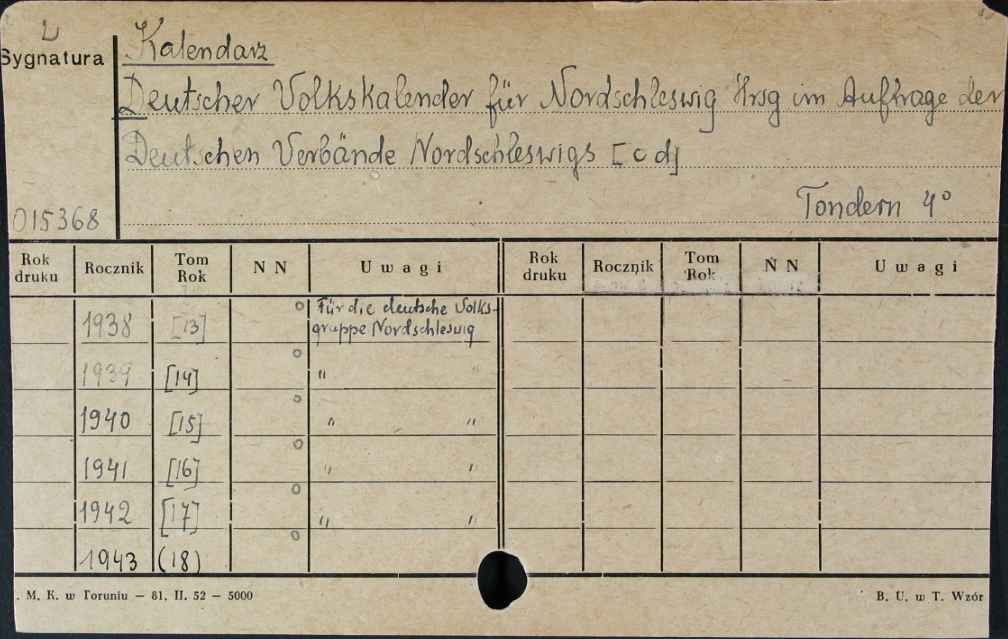 L
Sygnatura
Kalendarz
Deutscher Volkskalender für Nordschleswig Hrsg im Auftrage der
Deutschen Verbände Nordschleswigs [c d]
015368
Tondern 4°
Rok druku Rocznik Tom Rok N N Uwagi Rok druku Rocznik Tom Rok N N Uwagi
1938 [13] o Für die deutsche Volks-
gruppe Nordschleswig
1939 [14] o " "
1940 [15] o " "
1941 [16] o " "
1942 [17] o " "
1943 (18) o
. M. K. w Toruniu — 81. II. 52 — 5000
B. U. w T. Wzór